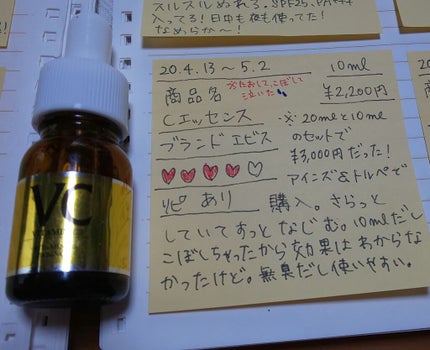 スルスルぬれる。SPF25、PA++
入ってる!日中も夜も使ってた!
なめらか〜!
20.4.13〜5.2
10ml
商品名
※たおして、こぼして
泣いた
¥2,200円
Cエッセンス
ブランド エビス
※20mlと10ml
のセットで
¥3,000円だった!
アインズ&トルペで
リピ あり
購入。さらっと
していてすっとなじむ。10mlだし
こぼしちゃったから効果はわからな
かったけど。無臭だし使いやすい。
VC